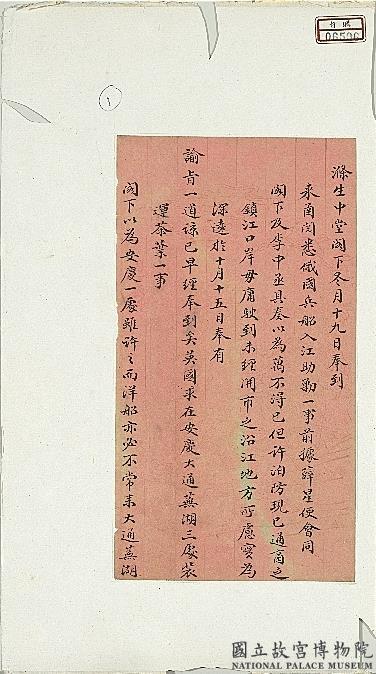 滌生中堂閣下冬月十九日奉到
來函閱悉俄國兵船入江助勦一事前據薛星使會同
閣下及李中丞具奏以為萬不得已但許泊防現已通商之
鎮江口岸毋庸駛到未經開市之沿江地方所慮實為
深遠於十月十五日奉有
諭旨一道諒已早經奉到矣英國求在安慶大通蕪湖三處裝
運茶葉一事
閣下以為安慶一處雖許之而洋船亦必不常來大通蕪湖
1
06506
國立故宮博物院
NATIONAL PALACE MUSEUM